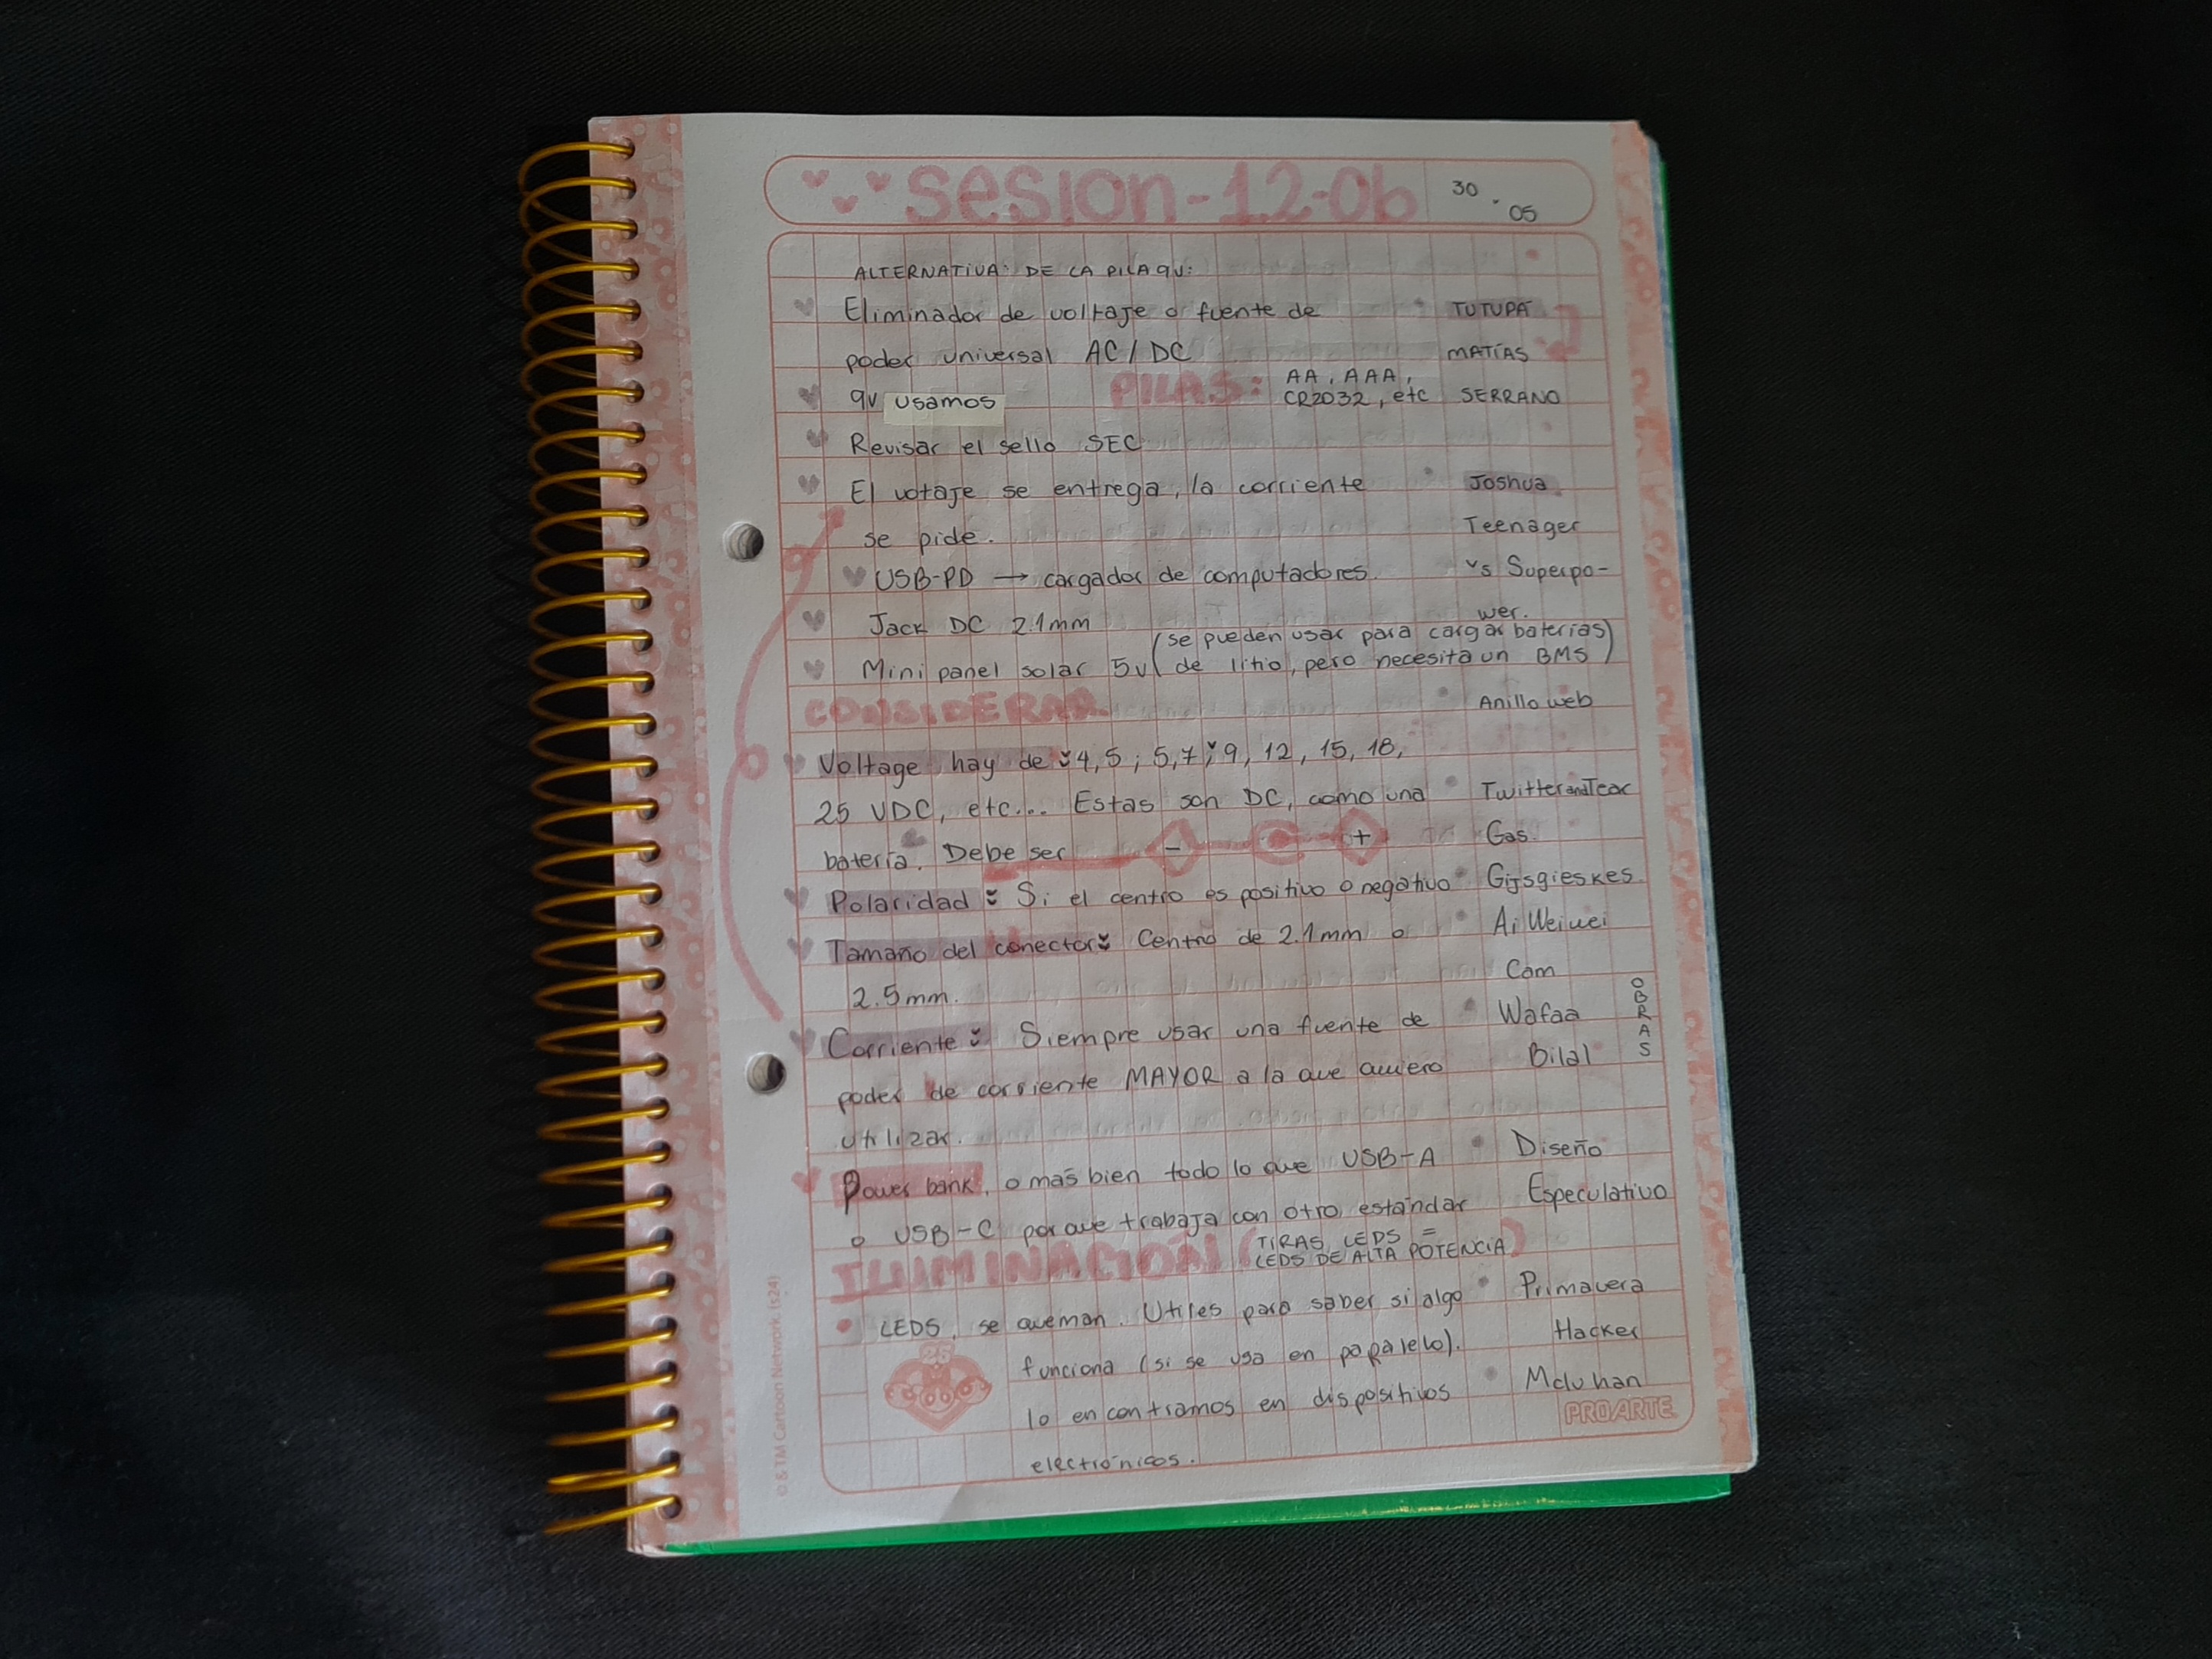 sesion-12-0b
30 . 05
ALTERNATIVA: DE LA PILA 9V:
Eliminador de voltaje o fuente de
poder universal AC/DC
PILAS: AA, AAA,
CR2032, etc
9V usamos
Revisar el sello SEC
El votaje se entrega, la corriente
se pide.
USB-PD → cargador de computadores.
Jack DC 2.1mm
Mini panel solar 5v (se pueden usar para cargar baterias
de litio, pero necesita un BMS)
CONSIDERAR
Voltage hay de: 4,5; 5,7; 9, 12, 15, 18,
25 VDC, etc... Estas son DC, como una
batería. Debe ser - +
Polaridad: Si el centro es positivo o negativo
Tamaño del conector: Centro de 2.1mm o
2.5mm.
Corriente: Siempre usar una fuente de
poder de corriente MAYOR a la que quiero
utilizar.
Power bank, o más bien todo lo que USB-A
o USB-C porque trabaja con otro estándar
ILUMINACIÓN (TIRAS LEDS =
LEDS DE ALTA POTENCIA)
LEDS, se queman. Utiles para saber si algo
funciona (si se usa en paralelo).
lo encontramos en dispositivos
electrónicos.
TUTUPA
MATÍAS
SERRANO
Joshua
Teenager
vs Superpo-
wer.
Anillo web
TwitterandTear
Gas.
Gijsgieskes
Ai Weiwei
Cam
Wafaa
Bilal
Diseño
Especulativo
Primavera
Hacker
Mcluhan
OBRAS
25
PROARTE
© & TM Cartoon Network. (s24)